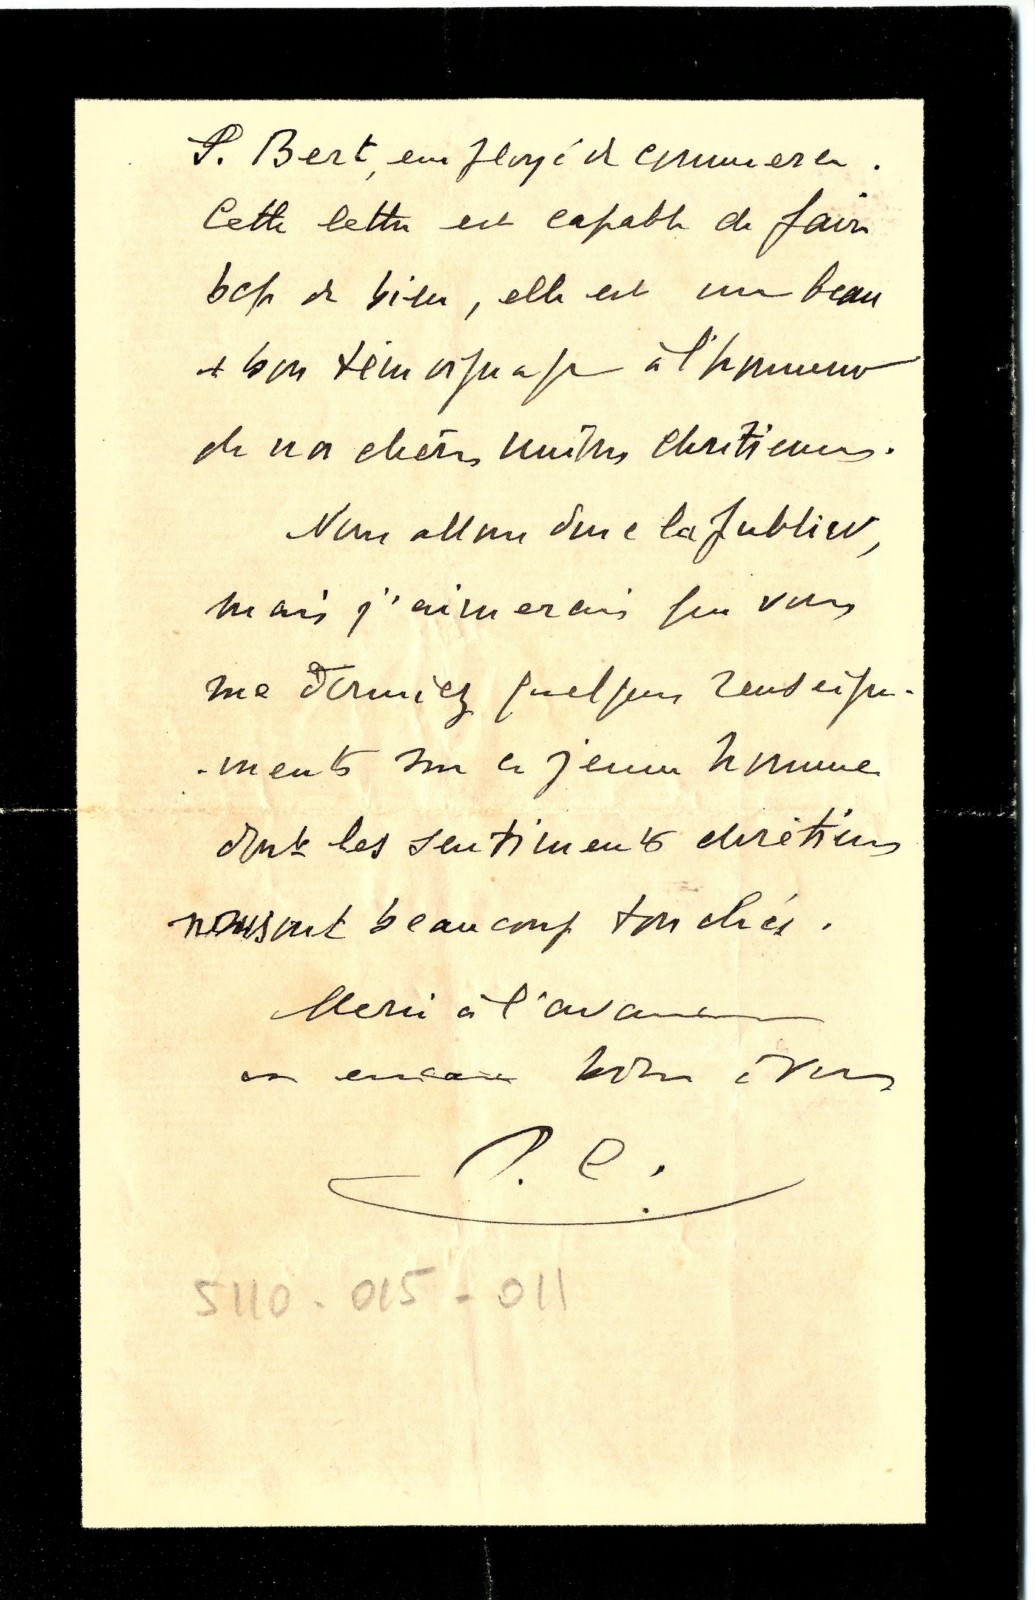 P. Bert, employé de commerce.
Cette lettre est capable de faire
bcp de bien, elle est un beau
+ bon témoignage à l'honneur
de nos chères unions chrétiennes.
Nous allons donc la publier,
mais j'aimerais que vous
me donniez quelques renseigne-
-ments sur ce jeune homme
dont les sentiments chrétiens
nous ont beaucoup touchés.
Merci à l'avance
et encore bien à vous
P. C.
5110 - 015 - 011